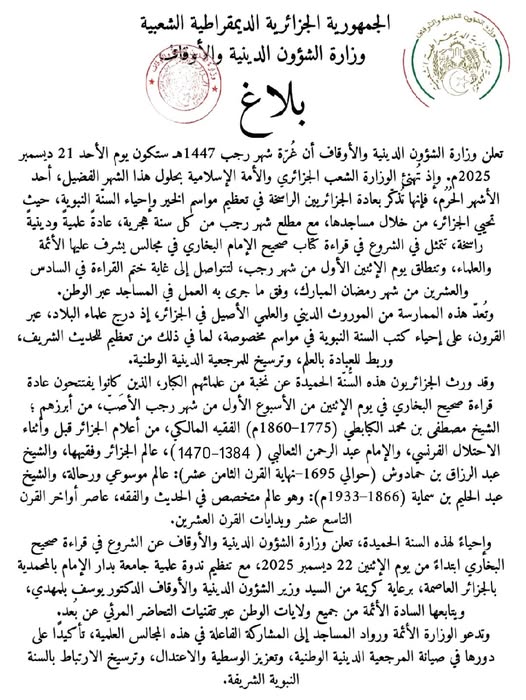 الجمهورية الجزائرية الديمقراطية الشعبية
وزارة الشؤون الدينية والأوقاف
بلاغ
تعلن وزارة الشؤون الدينية والأوقاف أن غُرّة شهر رجب 1447هـ ستكون يوم الأحد 21 ديسمبر
2025م. وإذ تُهنئ الوزارة الشعب الجزائري والأمة الإسلامية بحلول هذا الشهر الفضيل، أحد
الأشهر الحُرُم، فإنها تذكّر بعادة الجزائريين الراسخة في تعظيم مواسم الخير وإحياء السنّة النبوية، حيث
تحيي الجزائر، من خلال مساجدها، مع مطلع شهر رجب من كل سنة هجرية، عادةً علميةً ودينيةً
راسخة، تتمثل في الشروع في قراءة كتاب صحيح الإمام البخاري في مجالس يشرف عليها الأئمة
والعلماء، وتنطلق يوم الإثنين الأول من شهر رجب، لتتواصل إلى غاية ختم القراءة في السادس
والعشرين من شهر رمضان المبارك، وفق ما جرى به العمل في المساجد عبر الوطن.
وتُعدّ هذه الممارسة من الموروث الديني والعلمي الأصيل في الجزائر، إذ درج علماء البلاد، عبر
القرون، على إحياء كتب السنة النبوية في مواسم مخصوصة، لما في ذلك من تعظيم للحديث الشريف،
وربط للعبادة بالعلم، وترسيخ للمرجعية الدينية الوطنية.
وقد ورث الجزائريون هذه السُّنّة الحميدة عن نخبة من علمائهم الكبار، الذين كانوا يفتتحون عادة
قراءة صحيح البخاري في يوم الإثنين من الأسبوع الأول من شهر رجب الأصَبّ، من أبرزهم ؛
الشيخ مصطفى بن محمد الكبابطي (1775–1860م) الفقيه المالكي، من أعلام الجزائر قبل وأثناء
الاحتلال الفرنسي، والإمام عبد الرحمن الثعالبي ( 1384-1470)، عالم الجزائر وفقيهها، والشيخ
عبد الرزاق بن حمادوش (حوالي 1695–نهاية القرن الثامن عشر): عالم موسوعي ورحالة، والشيخ
عبد الحليم بن سماية (1866–1933م): وهو عالم متخصص في الحديث والفقه، عاصر أواخر القرن
التاسع عشر وبدايات القرن العشرين.
وإحياءً لهذه السنة الحميدة، تعلن وزارة الشؤون الدينية والأوقاف عن الشروع في قراءة صحيح
البخاري ابتداءً من يوم الإثنين 22 ديسمبر 2025، مع تنظيم ندوة علمية جامعة بدار الإمام بالمحمدية
بالجزائر العاصمة، برعاية كريمة من السيد وزير الشؤون الدينية والأوقاف الدكتور يوسف بلمهدي،
ويتابعها السادة الأئمة من جميع ولايات الوطن عبر تقنيات التحاضر المرئي عن بُعد.
وتدعو الوزارة الأئمة ورواد المساجد إلى المشاركة الفاعلة في هذه المجالس العلمية، تأكيدًا على
دورها في صيانة المرجعية الدينية الوطنية، وتعزيز الوسطية والاعتدال، وترسيخ الارتباط بالسنة
النبوية الشريفة.